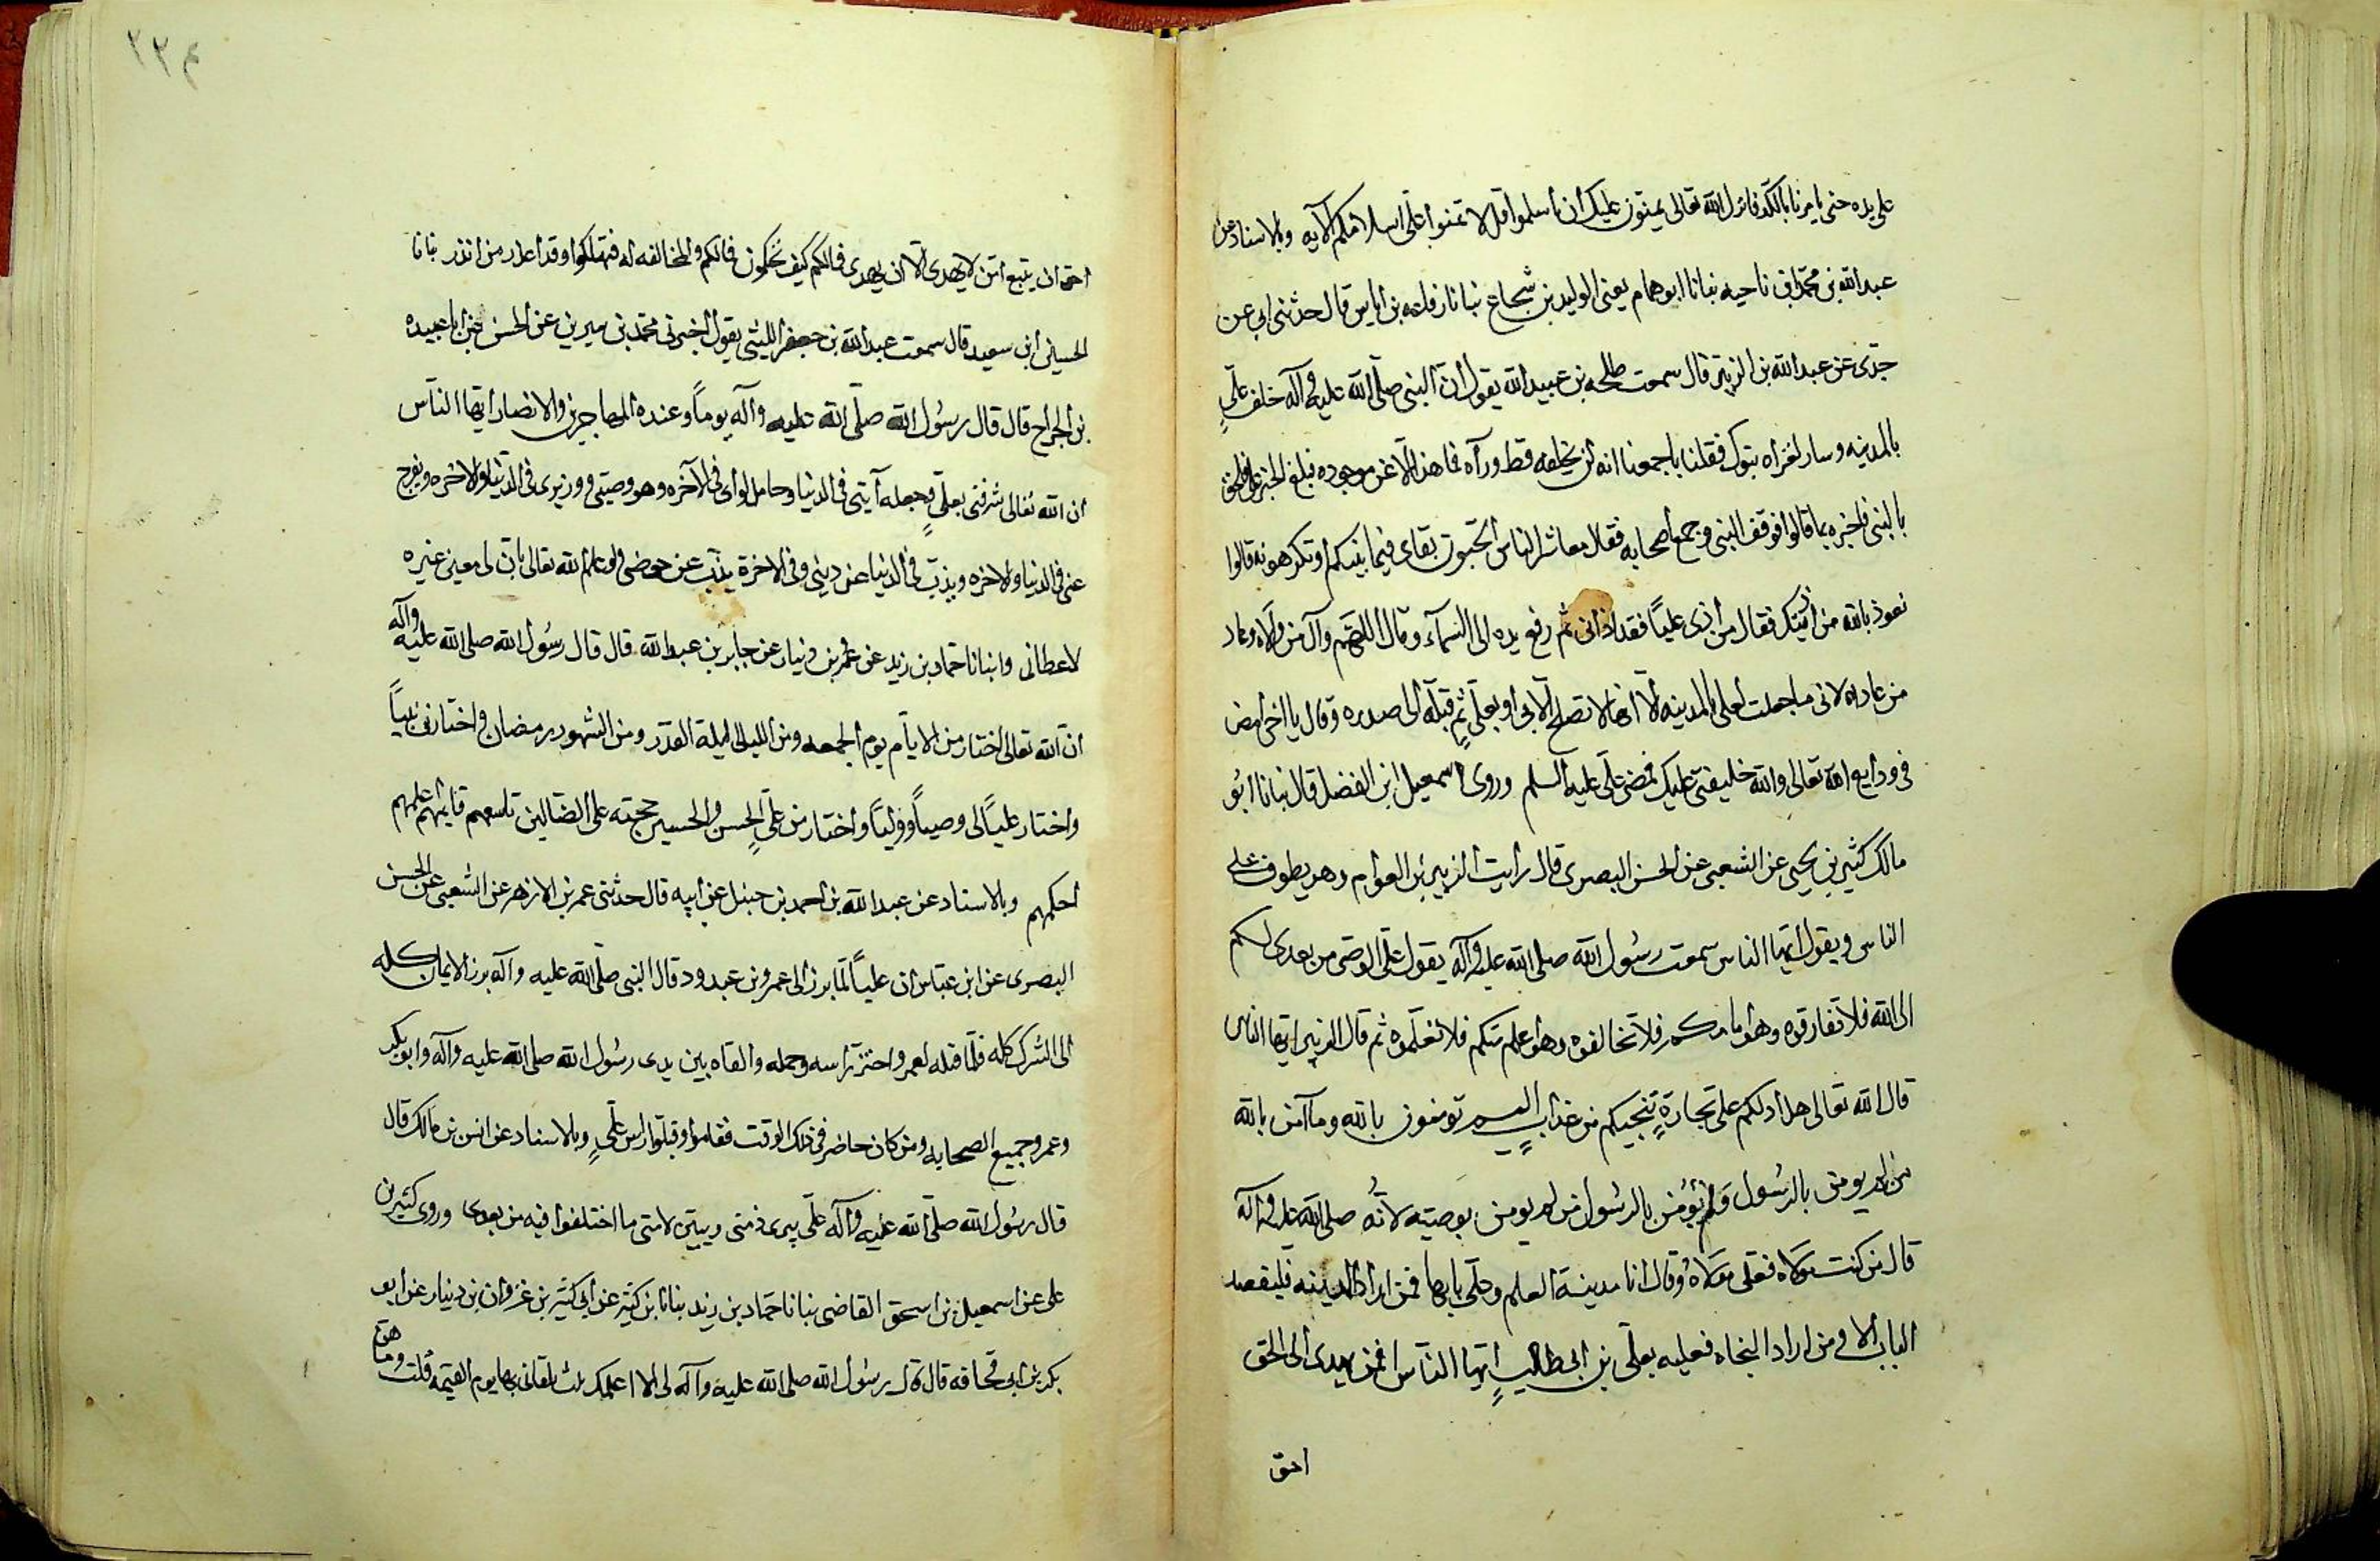 على يده حتى يامرنا بالكد فانزل الله تعالى يمنون عليك ان اسلموا قل لا تمنوا على اسلامكم الآيه وبالاسناد عن
عبد الله بن محمد ابن ناحيه نبانا ابو همام يعنى الوليد بن شجاع نبانا رفاعه بن اياس قال حدثنى ابى عن
جدى عن عبد الله بن الزبير قال سمعت طلحه بن عبيد الله يقول ان النبى صلى الله عليه وآله خلف علىٍ
بالمدينه وسار لغزاه تبوك فقلنا باجمعنا انه لن يخلفه قط ورآه فما هذا الا عن موجوده فبلغ الخبر على فلحق
بالنبى فاخبره بما قالوا فوقف النبى وجمع اصحابه فقال معاشر الناس اتحبون بقاى فيما بينكم او تكرهونه قالوا
نعوذ بالله من اذيتك فقال من اذى علياً فقد اذانى ثم رفع يده الى السمآء وقال اللهم وآل من والاه وعاد
من عاداه لانى ما جعلت لعلى المدينه الا انها لا تصلح الا بى او بعلىٍ ثم قبله الى صدره وقال يا اخى امض
فى ودايع الله تعالى والله خليفتى عليك فمضى على عليه السلم وروى اسمعيل ابن الفضل قال نبانا ابو
مالك كثير بن يحيى عن الشعبى عن الحسن البصرى قال رايت الزبير بن العوام وهو يطوف على
الناس ويقول ايها الناس سمعت رسول الله صلى الله عليه وآله يقول على الوصى من بعدى لكم
الى الله فلا تفارقوه وهو امامكم فلا تخالفوه وهو اعلم منكم فلا تعلموه ثم قال الزبير ايها الناس
قال الله تعالى هل ادلكم على تجارةٍ تنجيكم من عذابٍ اليم تومنون بالله وما آمن بالله
من لم يومن بالرسول ولم يؤمن بالرسول من لم يومن بوصيته لانه صلى الله عليه وآله
قال من كنت مولاه فعلى مولاه وقال انا مدينة العلم وعلى بابها فمن اراد المدينه فليقصد
الباب الا ومن اراد النجاه فعليه بعلى بن ابى طالبٍ ايها الناس افمن يهدى الى الحق
احق
٢٣٤
احق ان يتبع امن لا يهدى الا ان يهدى فما لكم كيف تحكمون فمالكم والمخالفه له فتهلكوا وقد اعذر من انذر نبانا
الحسين ابن سعيد قال سمعت عبد الله بن جعفر الليثى يقول اخبرنى محمد بن سيرين عن الحسن عن ابا عبيده
بن الجراح قال قال رسول الله صلى الله عليه وآله يوماً وعنده المهاجرين والانصار ايها الناس
ان الله تعالى شرفنى بعلىٍ وجعله آيتى فى الدنيا وحامل لواى فى الآخره وهو وصيتى ووزيرى فى الدنيا والاخره ويفرج
عنى فى الدنيا والاخره ويذبّ فى الدنيا عن دينى وفى الاخرة يذبّ عن حوضى ولو علم الله تعالى بان لى معين غيره
لاعطانى وانبانا حماد بن زيد عن عمر بن دينار عن جابر بن عبد الله قال قال رسول الله صلى الله عليه وآله
ان الله تعالى اختار من الايام يوم الجمعه ومن الليالى ليلة القدر ومن الشهور رمضان واختارنى نبياً
واختار علياً لى وصياً ووليّاً واختار من علىٍ الحسن والحسين حجته على الضالين تاسعهم قايمهم اعلمهم
احكمهم وبالاسناد عن عبد الله بن احمد بن حنبل عن ابيه قال حدثنى عمر بن الازهر عن الشعبى عن الحسن
البصرى عن ابن عباس ان علياً لما برز الى عمرو بن عبدود قال النبى صلى الله عليه وآله برز الايمان كله
الى الشرك كله فلما قتله لعمرو احتز راسه وحمله والقاه بين يدى رسول الله صلى الله عليه وآله وابو بكر
وعمر وجميع الصحابه ومن كان حاضر فى ذلك الوقت فقاموا وقبلوا راس علىٍ وبالاسناد عن انس بن مالك قال
قال رسول الله صلى الله عليه وآله على يبرى ذمتى ويبين لامتى ما اختلفوا فيه من بعدى وروى كثير بن
على عن اسمعيل بن اسحق القاضى نبانا حماد بن زيد نبانا بن كثير عن ابى كثير بن غزوان بن دينار عن ابو
بكر بن ابى قحافه قال قال رسول الله صلى الله عليه وآله لى الا اعلمك بلث تلقانى بها يوم القيمه قلت وما هو